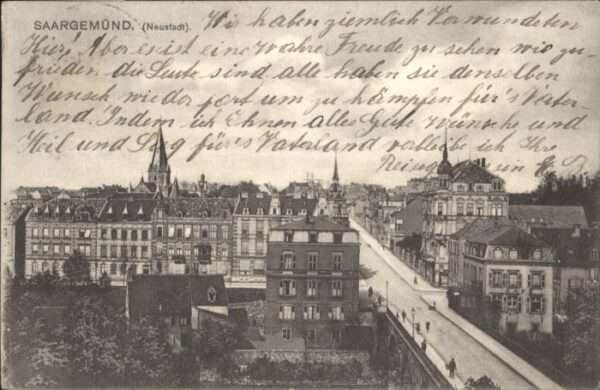 SAARGEMÜND. (Neustadt).
Wir haben ziemlich Vermundeten
Hier! Aber es ist eine wahre Freude zu sehen wie zu-
frieden die Leute sind alle haben sie denselben
Wunsch wieder fort um zu kämpfen für's Vater-
land. Indem ich Ehnen alles Gute Wünsche und
Heil und Sieg für's Vaterland verbleibe ich Ihre